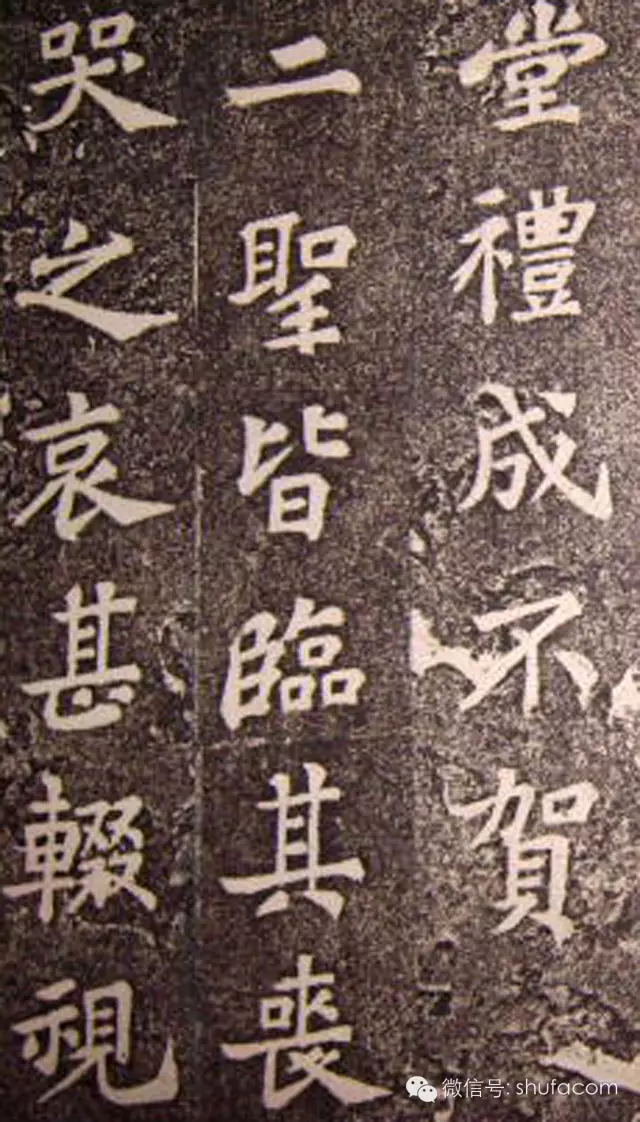 堂禮成不賀
二聖皆臨其喪
哭之哀甚輟視
微信号: shufacom